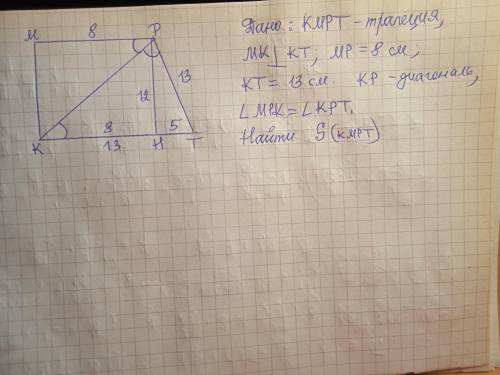 M 8 P
Дано: KMPT - трапеция,
MK ⊥ KT, MP = 8 см,
13
12
KT = 13 см. KP - диагональ,
∠MPK = ∠KPT.
8 5
Найти S(KMPT)
K 13 H T